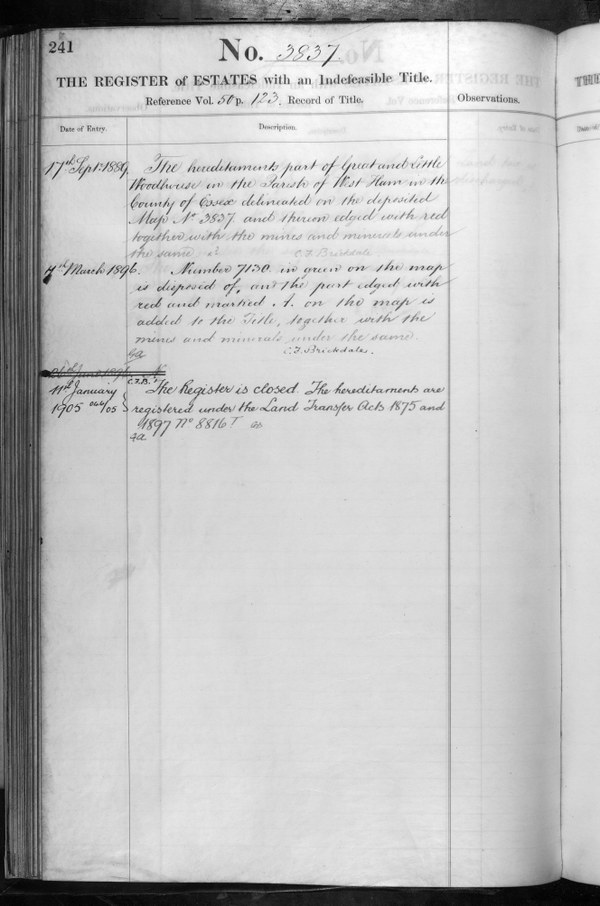 241
No. 3837
THE REGISTER of ESTATES with an Indefeasible Title.
Reference Vol. 50 p. 123. Record of Title.
Observations.
Date of Entry.
Description.
17th Sept: 1889.
The hereditaments part of Great and Little
Woodhouse in the Parish of West Ham in the
County of Essex delineated on the deposited
Map No 3837 and thereon edged with red
together with the mines and minerals under
the same
C.F. Brickdale
7th March 1896.
Number 7150 in green on the map
is disposed of, and the part edged with
red and marked A. on the map is
added to the Title, together with the
mines and minerals under the same.
C.F. Brickdale.
C.F.B.
11th January
1905
The Register is closed. The hereditaments are
registered under the Land Transfer Acts 1875 and
1897 No 8816